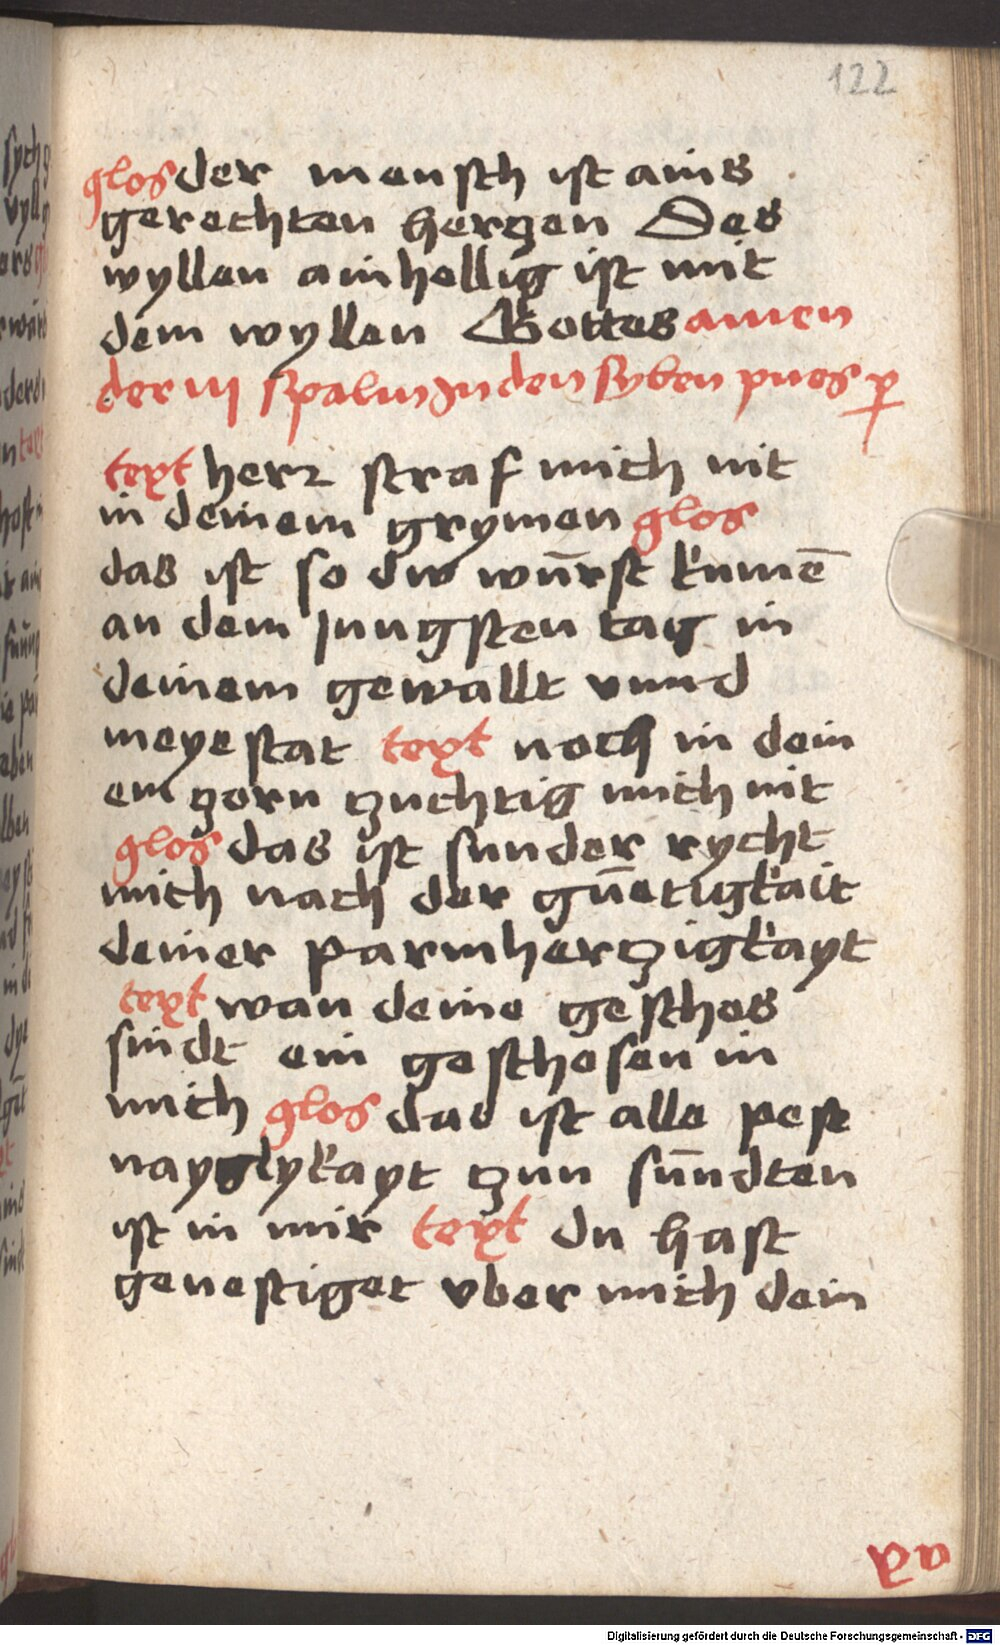 122
glos der mensch ist ains
gerechten herczen Des
wyllen ainhellig ist mit
dem wyllen Gottes amen
der iii spalm Jn den syben pues p
text herr straf mich nit
in deinem grymen glos
das ist so dw wūrst kumē
an dem Jungsten tag in
deinem gewallt vnnd
meyestat text noch in dein
em zorn zuchtig mich nit
glos das ist sunder rycht
mich nach der gūetigkait
deiner parmherczigkayt
text wan deine geschos
sindt ein geschosen in
mich glos das ist alle pest
nayglykayt zun sūndten
ist in mir text du hast
geuestiget vber mich dein
Digitalisierung gefördert durch die Deutsche Forschungsgemeinschaft - DFG